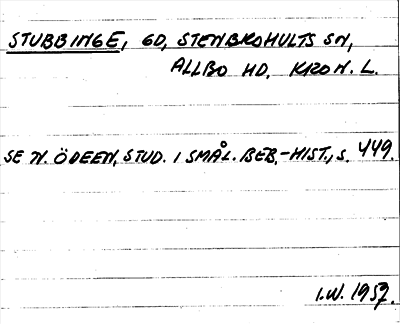 STUBBINGE, GD, STENBROHULTS SN,
ALLBO HD. KRON. L.
SE N. ÖDEEN, STUD. I SMÅL. BEB.-HIST., S. 449.
I.W. 1957.